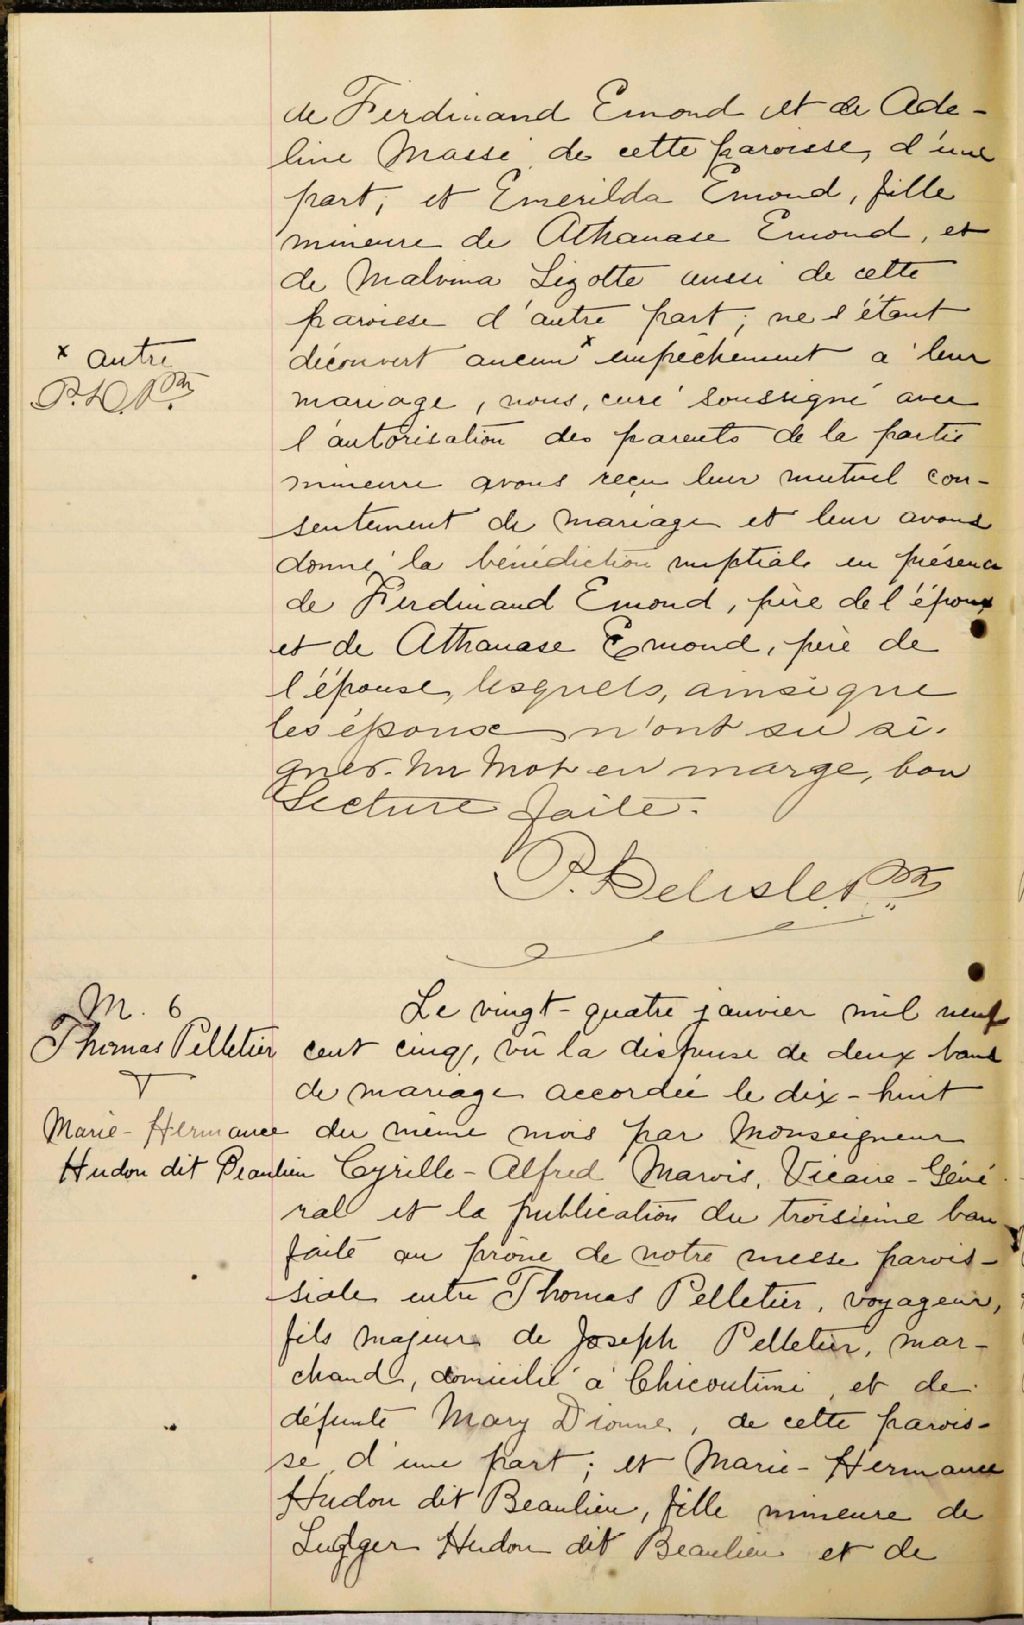 de Ferdinand Emond et de Ade-
line Massé de cette paroisse, d'une
part; et Emerilda Emond, fille
mineure de Athanase Emond, et
de Malvina Lizotte aussi de cette
paroisse d'autre part; ne s'étant
découvert aucun x empêchement à leur
x autre
P. D. Ptre
mariage, nous, curé soussigné avec
l'autorisation des parents de la partie
mineure avons reçu leur mutuel con-
sentement de mariage et leur avons
donné la bénédiction nuptiale en présence
de Ferdinand Emond, père de l'époux
et de Athanase Emond, père de
l'épouse, lesquels, ainsi que
les époux n'ont su si-
gner. Un mot en marge, bon
Lecture faite.
P. Delisle Ptre
M. 6
Thomas Pelletier
Marie-Hermance
Hudon dit Beaulieu
Le vingt-quatre janvier mil neuf
cent cinq, vû la dispense de deux bans
de mariage accordée le dix-huit
du même mois par Monseigneur
Cyrille-Alfred Marois, Vicaire-Géné
ral et la publication du troisième ban
faite au prône de notre messe parois-
siale entre Thomas Pelletier, voyageur,
fils majeur de Joseph Pelletier, mar-
chand, domicilié à Chicoutimi, et de
défunte Mary Dionne, de cette parois-
se, d'une part; et Marie-Hermance
Hudon dit Beaulieu, fille mineure de
Ludger Hudon dit Beaulieu et de